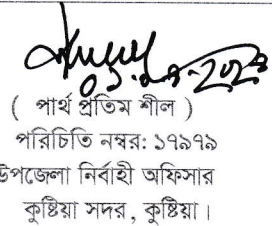 ( পার্থ প্রতিম শীল )
পরিচিতি নম্বর: ১৭৯৭৯
উপজেলা নির্বাহী অফিসার
কুষ্টিয়া সদর, কুষ্টিয়া।